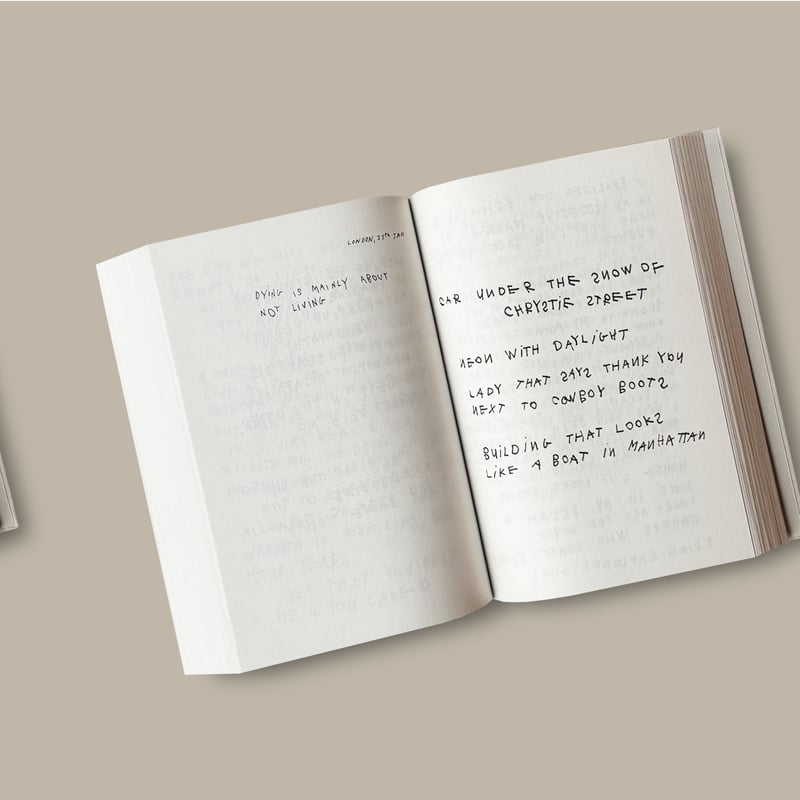 LONDON, 25TH JAN
DYING IS MAINLY ABOUT
NOT LIVING
CAR UNDER THE SNOW OF
CHRYSTIE STREET
NEON WITH DAYLIGHT
LADY THAT SAYS THANK YOU
NEXT TO COWBOY BOOTS
BUILDING THAT LOOKS
LIKE A BOAT IN MANHATTAN